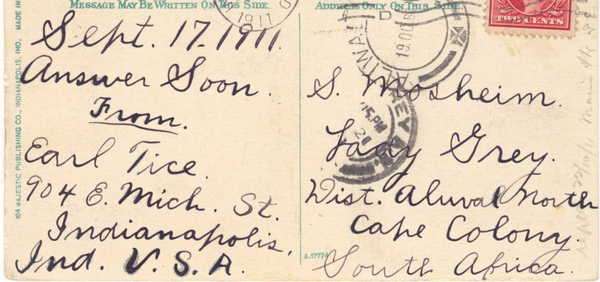 MESSAGE MAY BE WRITTEN ON THIS SIDE.
Sept. 17. 1911.
Answer Soon.
From.
Earl Tice.
904 E. Mich. St.
Indianapolis,
Ind. U.S.A.
104 MAJESTIC PUBLISHING CO., INDIANAPOLIS, IND. MADE IN
1911
ADDRESS ONLY ON THIS SIDE.
D
TWO CENTS
S. Mosheim.
Lady Grey.
Dist. Aluval North
Cape Colony.
South Africa.